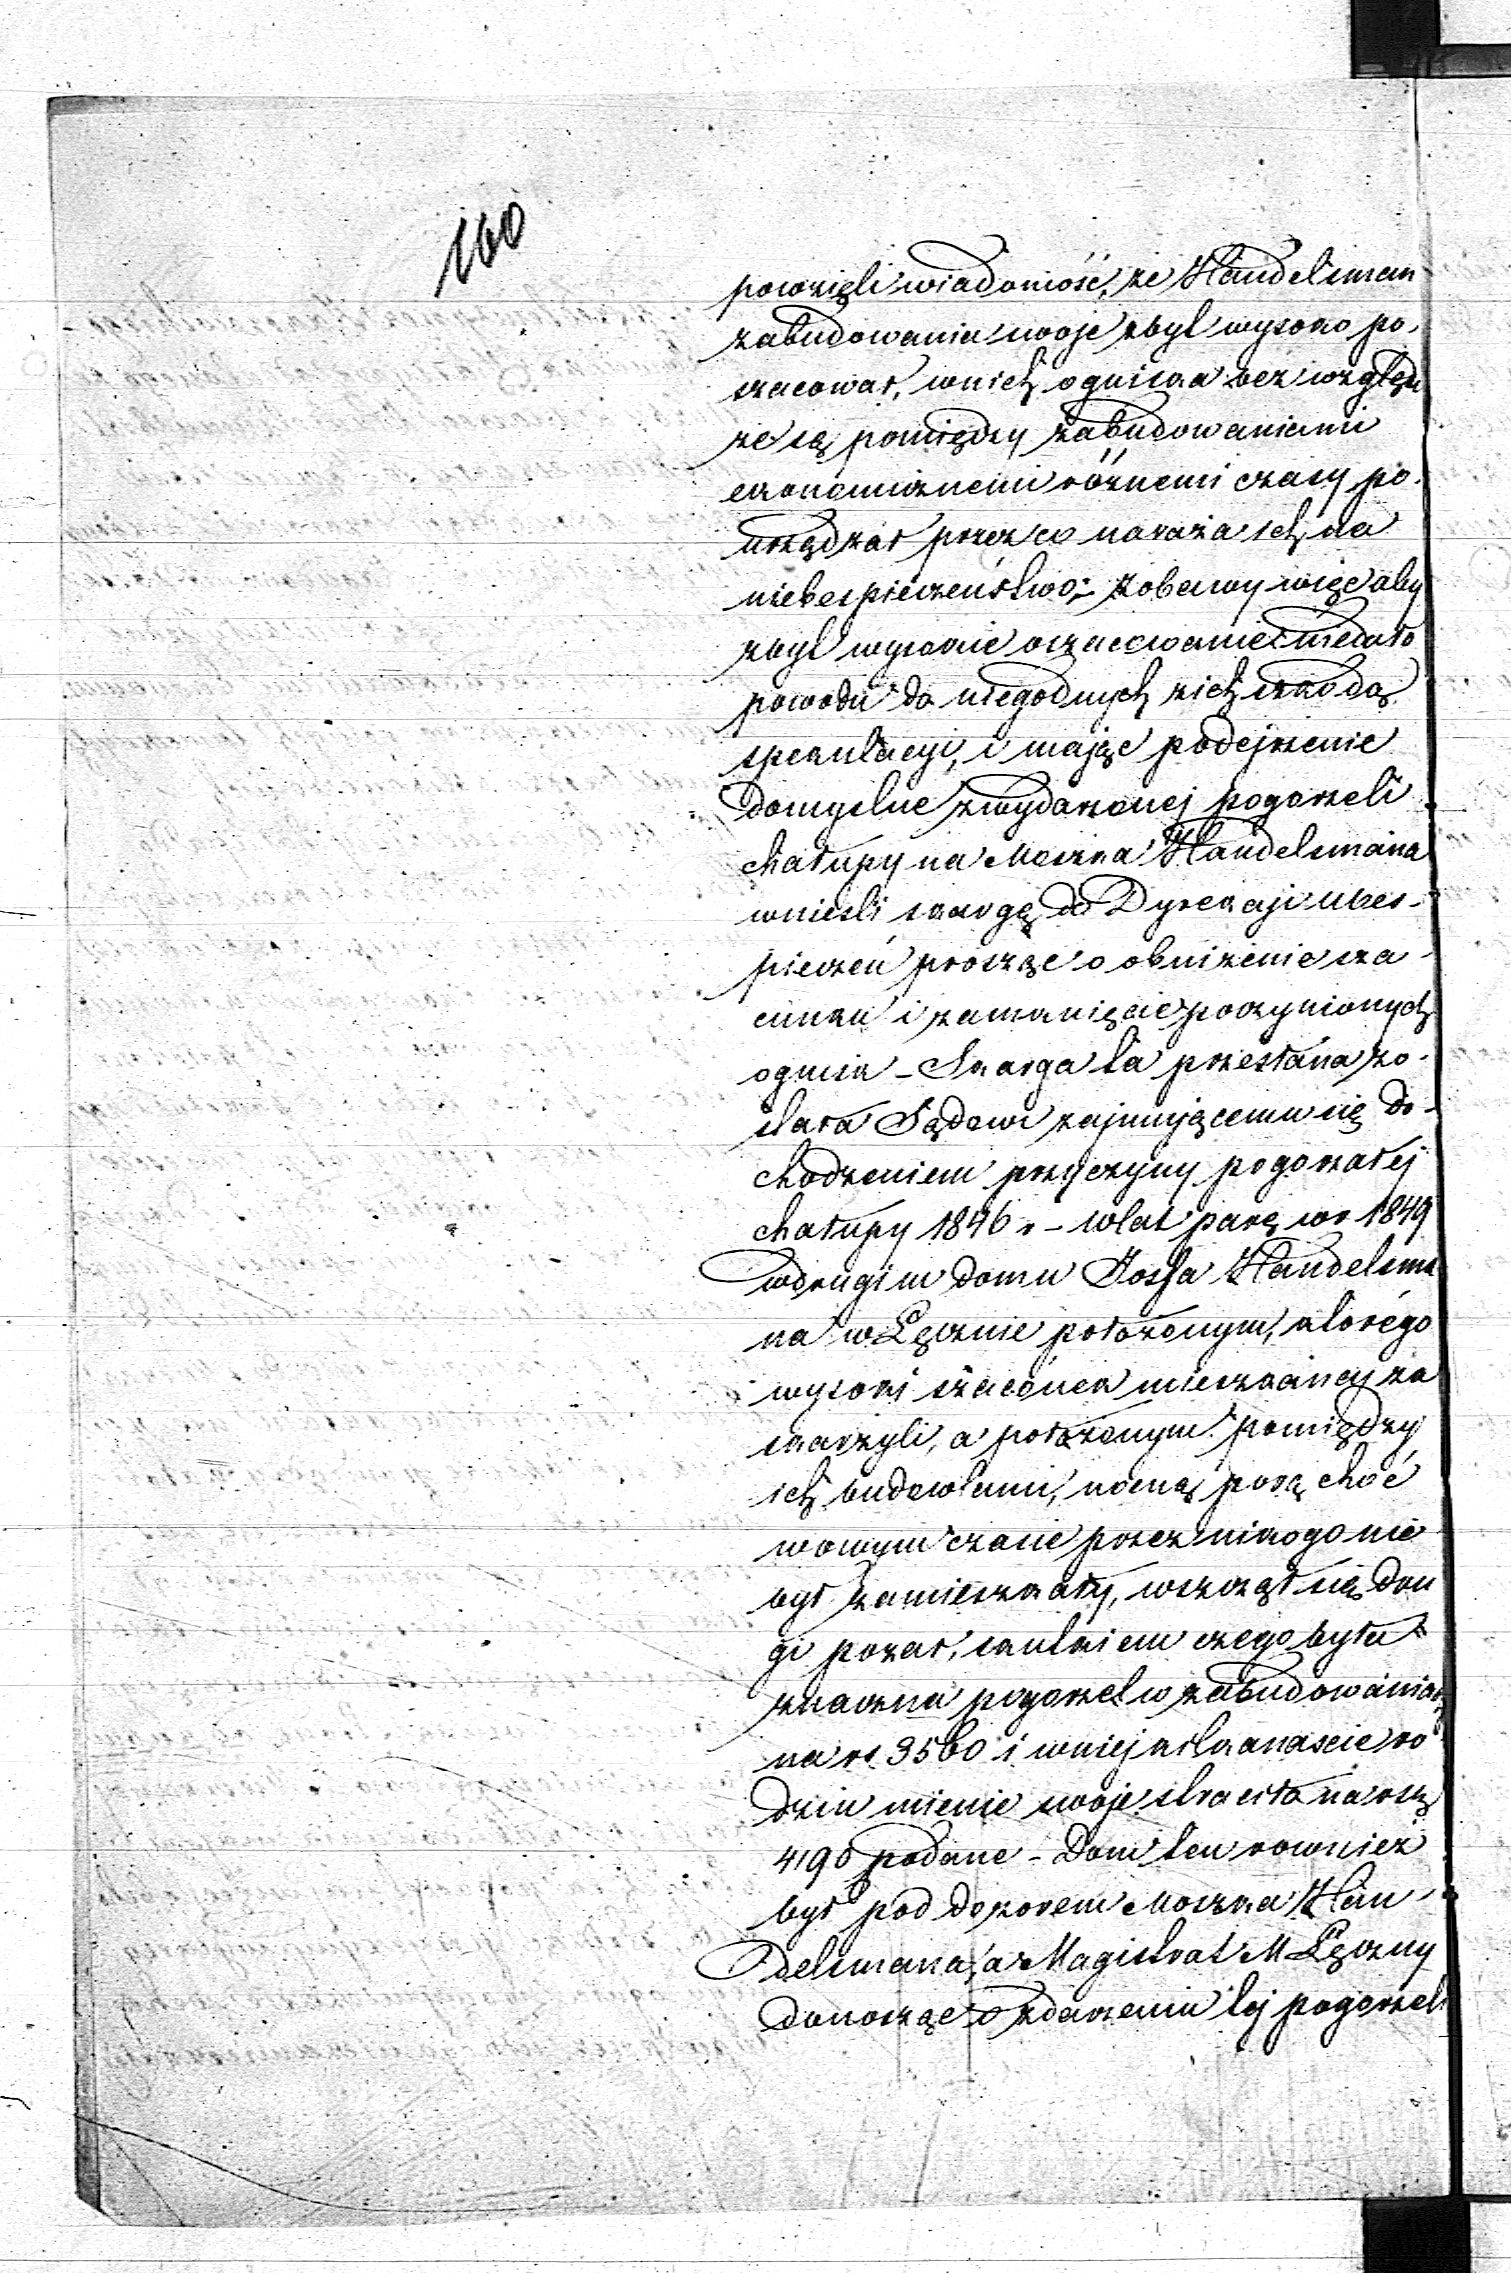 160
powzięli wiadomość, że Handelsman
zabudowania swoje zbyt wysoko po-
szacował, w nich ogniska bez względu
że są pomiędzy zabudowaniami
ekonomicznemi różnemi czasy po-
urządzał przez co naraża ich na
niebespieczeństwo; z obawy więc aby
zbyt wysokie oszacowanie niedało
powodu do niegodnych z ich szkodą
spekulacyi, i mając podejrzenie
domyślne z wydarzonej pogorzeli
chałupy na Moszka Handelsmana
wnieśli skargę do Dyrekcji ubes-
pieczeń prosząc o obniżenie sza-
cunku i zamknięcie poczynionych
ognisk – Skarga ta przesłana zo-
stała Sądowi zajmującemu się do-
chodzeniem przyczyny pogorzałej
chałupy 1846 r – w lat parę w r 1849
w drugim domu Joska Handelsma
na w Łęcznie położonym, którego
wysoki szacunek mieszkańcy za
skarżyli, a położonym pomiędzy
ich budowlami, nocną porą choć
w owym czasie przez nikogo nie
był zamieszkały, wszczął się dru
gi pożar, skutkiem czego była
znaczna pogorzel w zabudowaniach
na rs. 3560 i w niej kilkanaście ro
dzin mienie swoje straciło na rsr
4190 podane – Dom ten rownież
był pod dozorem Moszka Han-
delsmana, a Magistrat M Łęczny
donosząc o zdarzeniu tej pogorzeli